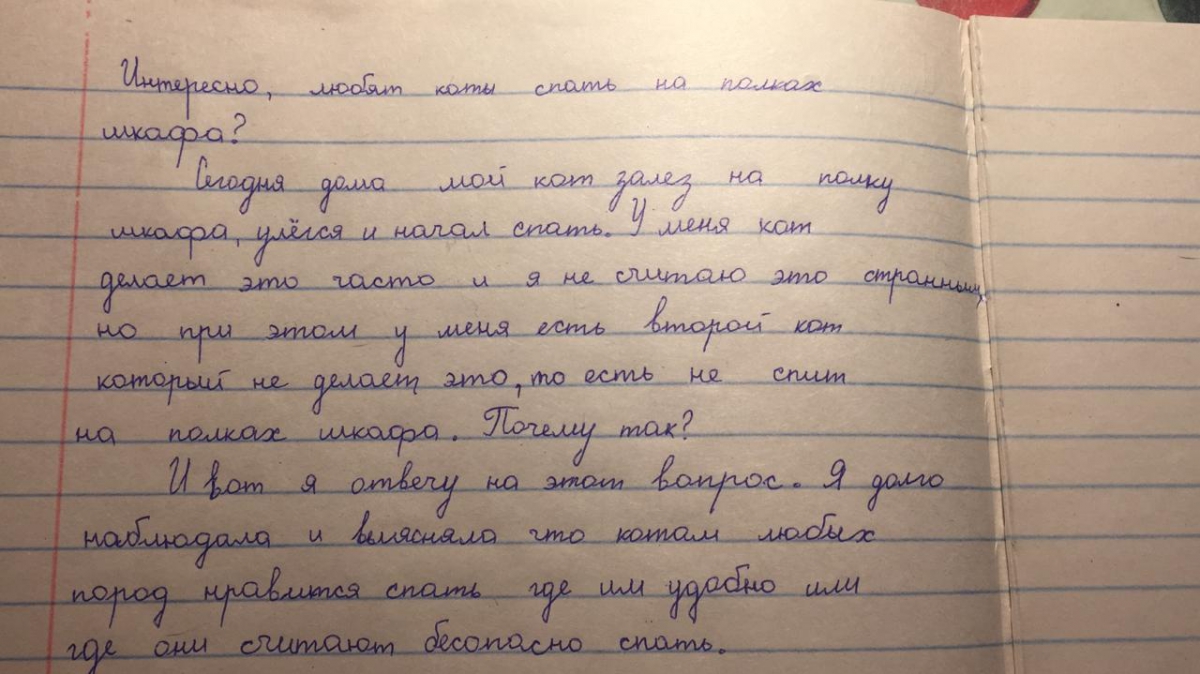 Интересно, любят коты спать на полках
шкафа?
Сегодня дома мой кот залез на полку
шкафа, улёгся и начал спать. У меня кот
делает это часто и я не считаю это странным,
но при этом у меня есть второй кот
который не делает это, то есть не спит
на полках шкафа. Почему так?
И вот я отвечу на этот вопрос. Я долго
наблюдала и выясняла что котам любых
пород нравится спать где им удобно или
где они считают бесопасно спать.